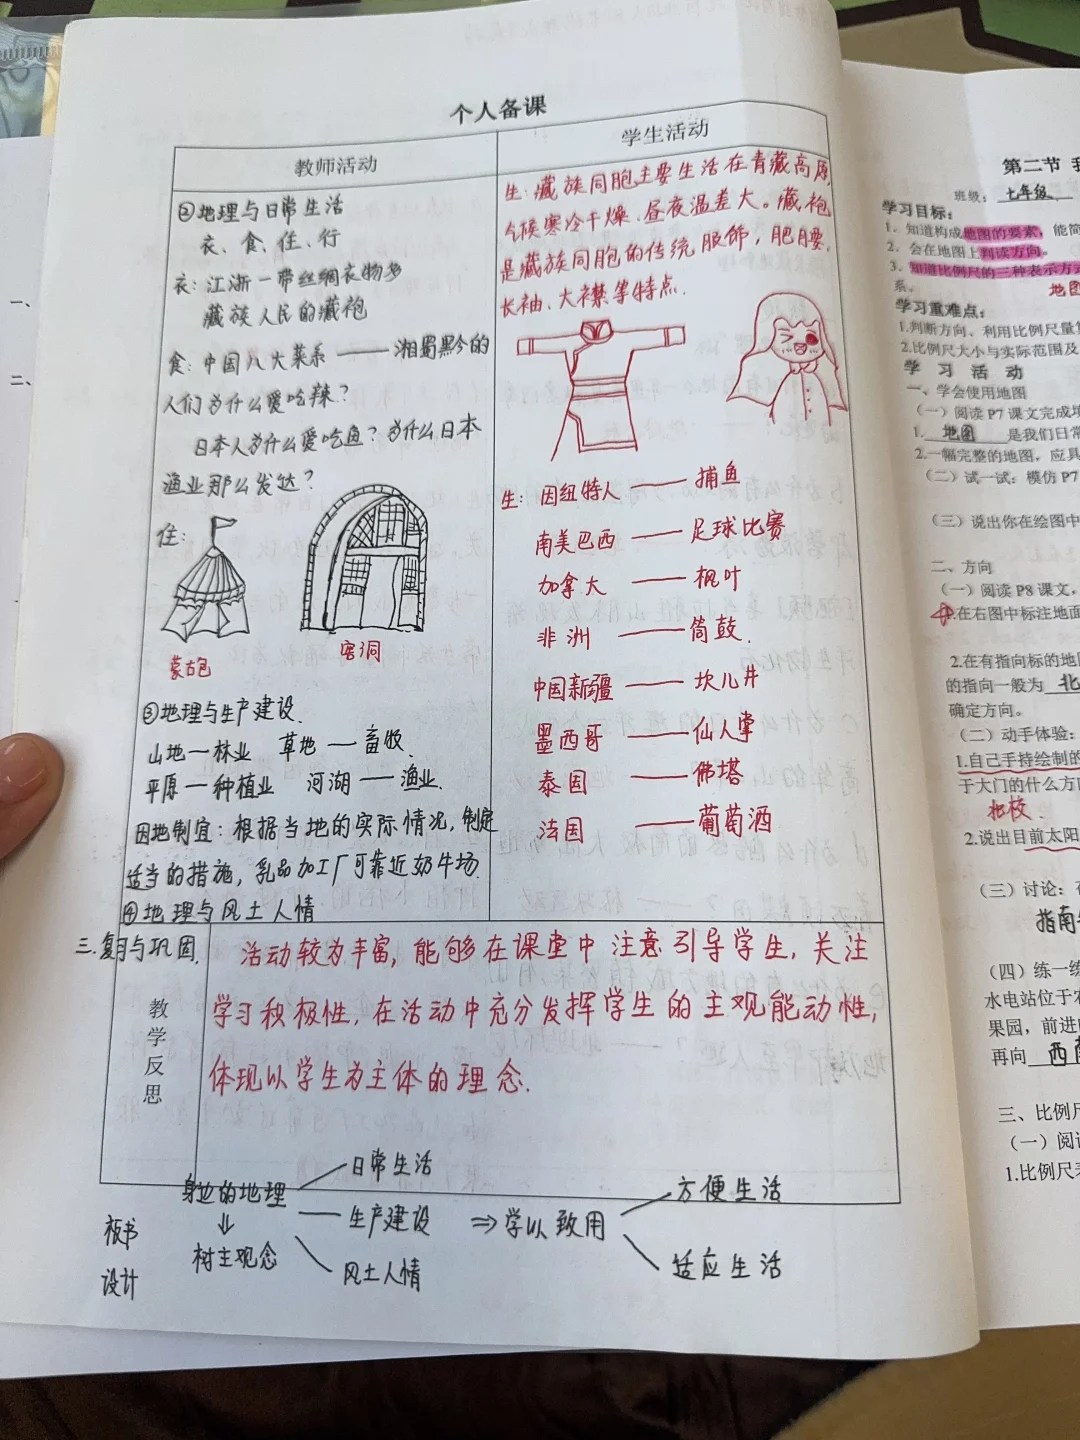 个人备课
教师活动
②地理与日常生活
衣、食、住、行
衣：江浙一带丝绸衣物多
藏族人民的藏袍
食：中国八大菜系——湘蜀黔的
人们为什么爱吃辣？
日本人为什么爱吃鱼？为什么日本
渔业那么发达？
住：
蒙古包
窑洞
③地理与生产建设.
山地—林业 草地—畜牧.
平原—种植业 河湖—渔业.
因地制宜：根据当地的实际情况，制定
适当的措施，乳品加工厂可靠近奶牛场.
④地理与风土人情
学生活动
生：藏族同胞主要生活在青藏高原，
气候寒冷干燥、昼夜温差大。藏袍
是藏族同胞的传统服饰，肥腰、
长袖、大襟等特点.
生：因纽特人——捕鱼
南美巴西——足球比赛
加拿大——枫叶
非洲——筒鼓.
中国新疆——坎儿井
墨西哥——仙人掌
泰国——佛塔
法国——葡萄酒
三.复习与巩固.
教学反思
活动较为丰富，能够在课堂中注意引导学生，关注
学习积极性，在活动中充分发挥学生的主观能动性，
体现以学生为主体的理念.
板书
设计
身边的地理
⇓
树主观念
日常生活
生产建设
风土人情
⇒学以致用
方便生活
适应生活
一、
二、
第二节
班级：七年级
学习目标：
1．知道构成地图的要素，能简
2．会在地图上判读方向。
3．知道比例尺的三种表示方式
系。
地图
学习重难点：
1.判断方向、利用比例尺量算
2.比例尺大小与实际范围及
学 习 活 动
一、学会使用地图
（一）阅读 P7 课文完成填
1. 地图 是我们日常
2.一幅完整的地图，应具
（二）试一试：模仿 P7
（三）说出你在绘图中
二、方向
（一）阅读 P8 课文，
在右图中标注地面
2.在有指向标的地图
的指向一般为 北
确定方向。
（二）动手体验：
1.自己手持绘制的
于大门的什么方向
2.说出目前太阳
（三）讨论：在
指南
（四）练一练
水电站位于农
果园，前进
再向 西南
三、比例尺
（一）阅读
1.比例尺表